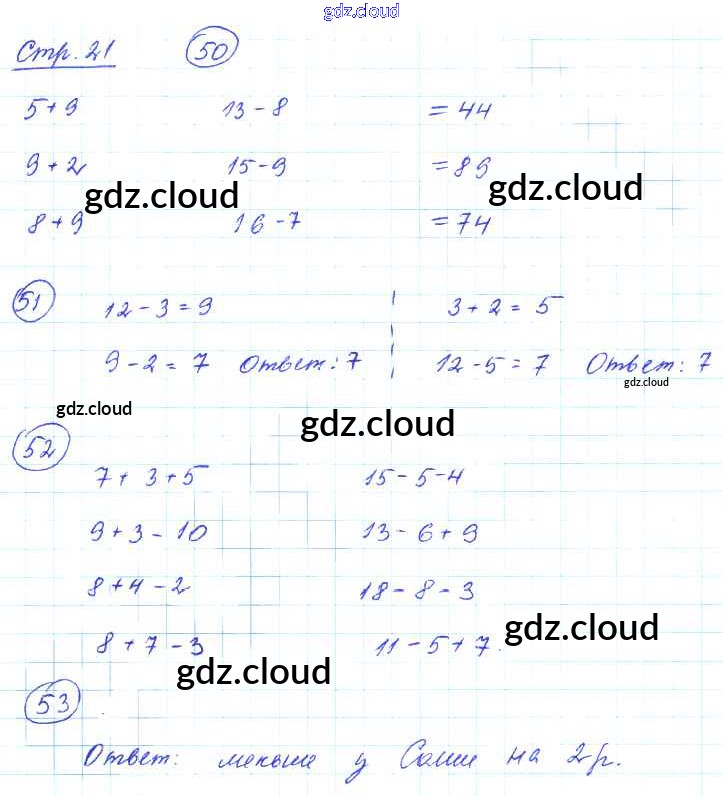 gdz.cloud
Стр. 21 50
5+9 13-8 = 44
9+2 15-9 = 89
gdz.cloud gdz.cloud
8+9 16-7 = 74
51 12-3=9 3+2=5
9-2=7 Ответ: 7 12-5=7 Ответ: 7
gdz.cloud
gdz.cloud
gdz.cloud
52
7+3+5 15-5-4
9+3-10 13-6+9
8+4-2 18-8-3
gdz.cloud
8+7-3 11-5+7
gdz.cloud
53
Ответ: меньше у Саши на 2 р.